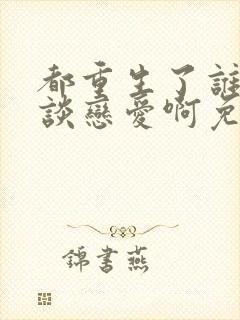 都重生了誰
談戀愛啊免
錦書燕